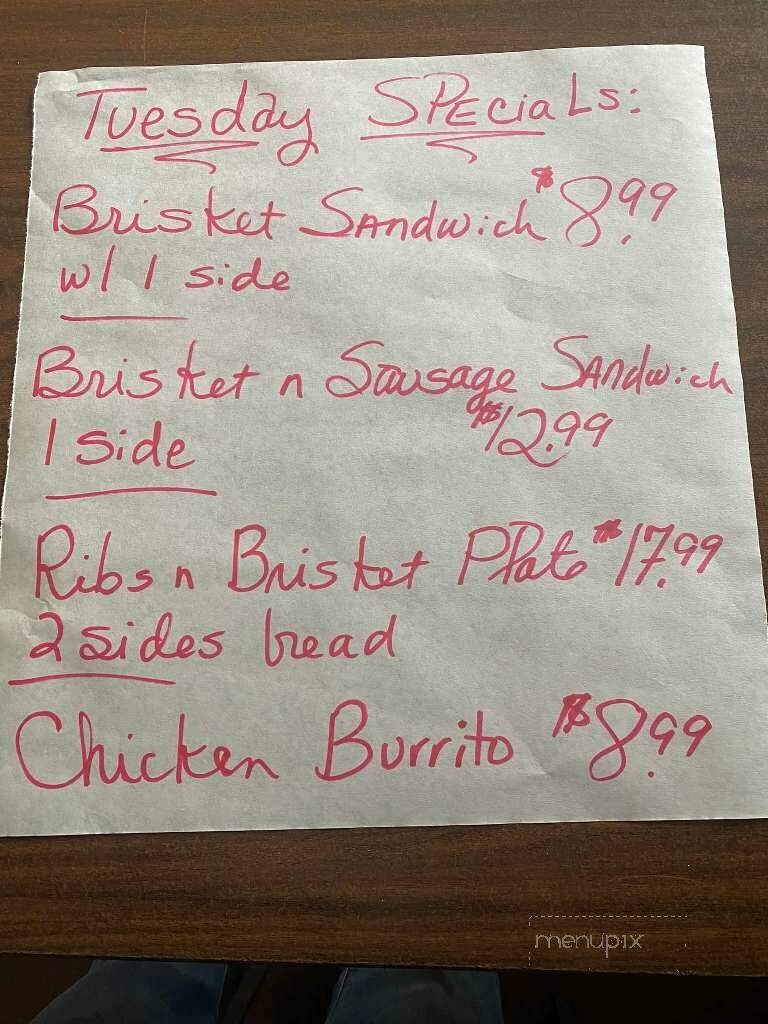 Tuesday Specials:
Brisket Sandwich $8.99
w/ 1 side
Brisket n Sausage Sandwich
1 side $12.99
Ribs n Brisket Plate $17.99
2 sides bread
Chicken Burrito $8.99
menupix